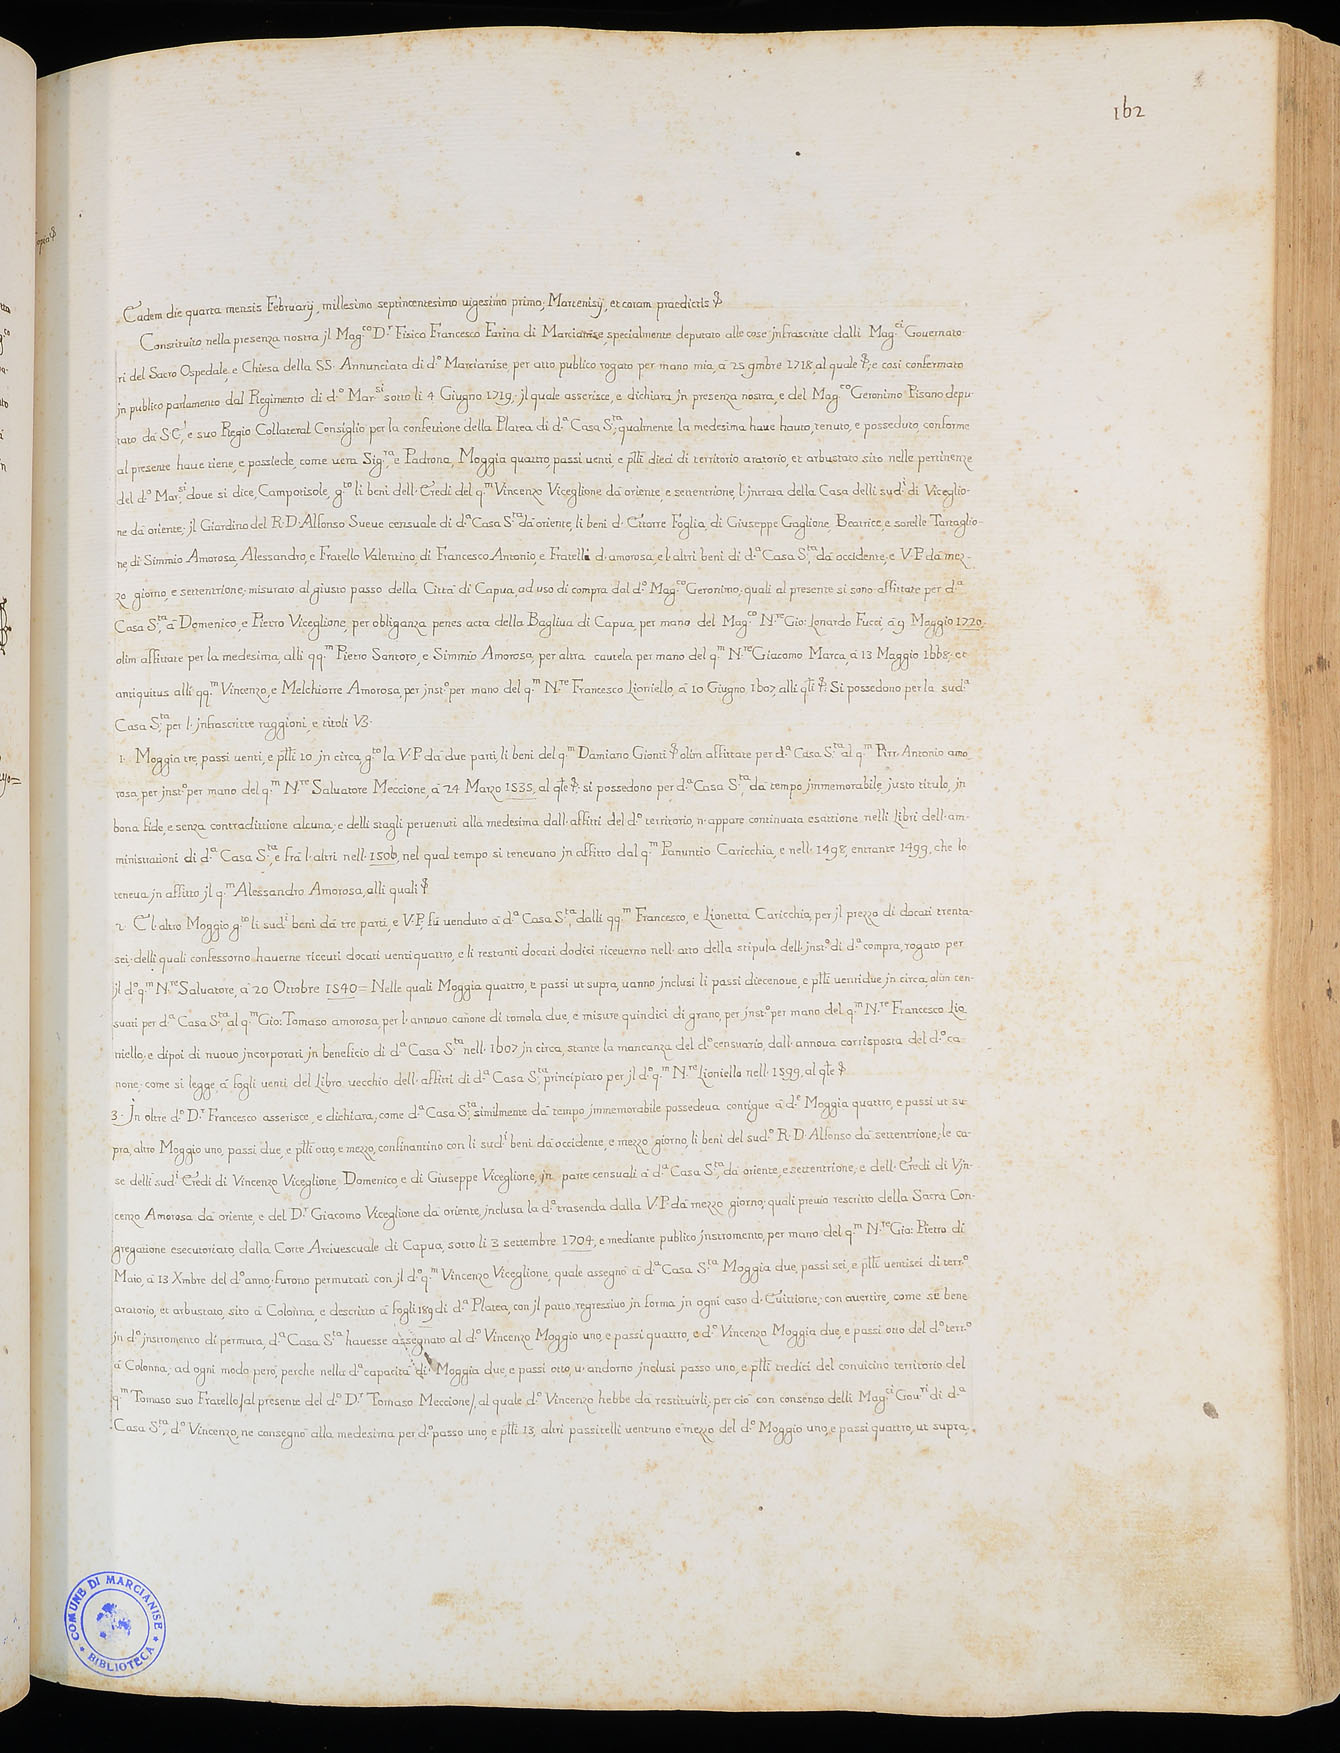 162
Eadem die quarta mensis Februarij, millesimo septincentesimo uigesimo primo, Martenisij, et coram praedictis &
Constituito nella presenza nostra jl Mag.co D.r Fisico Francesco Farina di Marcianise, specialmente deputato alle cose jnfrascritte dalli Mag.ci Gouernato-
ri del Sacro Ospedale, e Chiesa della SS. Annunciata di d.o Marcianise, per atto publico rogato per mano mia, à 25 9mbre 1718, al quale &; e così confermato
jn publico parlamento dal Regimento di d.o Mar.si sotto li 4 Giugno 1719; jl quale asserisce, e dichiara jn presenza nostra, e del Mag.co Geronimo Pisano depu-
tato da S.E., e suo Regio Collateral Consiglio per la confettione della Platea di d.a Casa S.ta, qualmente la medesima haue hauto, tenuto, e posseduto, conforme
al presente haue tiene, e possiede, come uera Sig.ra, e Padrona, Moggia quattro, passi uenti, e p̃lli dieci di territorio aratorio, et arbustato sito nelle pertinenze
del d.o Mar.si, doue si dice, Campotisole, g.to li beni dell'Eredi del q.m Vincenzo Viceglione da oriente, e settentrione, l'jntrata della Casa delli sud.i di Viceglio-
ne da oriente, jl Giardino del R.D. Alfonso Sueue censuale di d.a Casa S.ta da oriente, li beni d'Ettorre Foglia, di Giuseppe Gaglione, Beatrice, e sorelle Tartaglio-
ne, di Simmio Amorosa, Alessandro, e Fratello Valentino, di Francesco Antonio, e Fratelli d'amorosa, e l'altri beni di d.a Casa S.ta da occidente, e V.P. da mez-
zo giorno, e settentrione, misurato al giusto passo della Città di Capua, ad uso di compra dal d.o Mag.co Geronimo; quali al presente si sono affittate per d.a
Casa S.ta, à Domenico, e Pietro Viceglione, per obliganza penes acta della Bagliua di Capua, per mano del Mag.co N.re Gio: Lonardo Fucci, à 9 Maggio 1720,
olim affittate per la medesima, alli qq.m Pietro Santoro, e Simmio Amorosa, per altra cautela per mano del q.m N.re Giacomo Marca, à 13 Maggio 1668; et
antiquitus alli qq.m Vincenzo, e Melchiorre Amorosa, per jnst.o per mano del q.m N.re Francesco Lioniello, à 10 Giugno 1607, alli q̃li &: Si possedono per la sud.a
Casa S.ta, per l'jnfrascritte raggioni, e titoli V3.
1. Moggia tre, passi uenti, e p̃lli 10 jn circa, g.to la V.P. da due parti, li beni del q.m Damiano Gionti & olim affittate per d.a Casa S.ta al q.m Pirr'Antonio amo
rosa, per jnst.o per mano del q.m N.re Saluatore Meccione, à 24 Marzo 1535, al q̃le &: si possedono per d.a Casa S.ta, da tempo jmmemorabile, justo titulo, jn
bona fide, e senza contradittione alcuna, e delli stagli peruenuti alla medesima dall'affitti del d.o territorio, n'appare continuata esattione nelli Libri dell'am-
ministrationi di d.a Casa S.ta, e frà l'altri nell'1506, nel qual tempo si teneuano jn affitto dal q.m Panuntio Caricchia, e nell'1498, entrante 1499, che lo
teneua jn affitto jl q.m Alessandro Amorosa, alli quali &
2. E l'altro Moggio, g.to li sud.i beni da tre parti, e V.P., fù uenduto à d.a Casa S.ta, dalli qq.m Francesco, e Lionetta Caricchia, per jl prezzo di docati trenta-
sei, delli quali confessorno hauerne riceuti docati uentiquattro, e li restanti docati dodici riceuerno nell'atto della stipula dell'jnst.o di d.a compra, rogato per
jl d.o q.m N.re Saluatore, à 20 Ottobre 1540 = Nelle quali Moggia quattro, e passi ut supra, uanno jnclusi li passi diecenoue, e p̃lli uentidue jn circa, olim cen-
suati per d.a Casa S.ta, al q.m Gio: Tomaso amorosa, per l'annouo canone di tomola due, e misure quindici di grano, per jnst.o per mano del q.m N.re Francesco Lio
niello, e dipoi di nuouo jncorporati jn beneficio di d.a Casa S.ta nell'1607 jn circa, stante la mancanza del d.o censuario, dall'annoua corrisposta del d.o ca-
none, come si legge, à fogli uenti del Libro uecchio dell'affitti di d.a Casa S.ta, principiato per jl d.o q.m N.re Lioniello nell'1599, al q̃le &
3. Jn oltre d.o D.r Francesco asserisce, e dichiara, come d.a Casa S.ta, similmente da tempo jmmemorabile possedeua contigue à d.e Moggia quattro, e passi ut su-
pra, altro Moggio uno, passi due, e p̃lli otto, e mezzo, confinantino con li sud.i beni da occidente, e mezzo giorno, li beni del sud.o R.D. Alfonso da settentrione, le ca-
se delli sud.i Eredi di Vincenzo Viceglione, Domenico, e di Giuseppe Viceglione, jn parte censuali à d.a Casa S.ta, da oriente, e settentrione, e dell'Eredi di Vjn-
cenzo Amorosa da oriente, e del D.r Giacomo Viceglione da oriente, jnclusa la d.o trasenda dalla V.P. da mezzo giorno; quali preuio rescritto della Sacra Con-
gregatione esecutoriato, dalla Corte Arciuescuale di Capua, sotto li 3 settembre 1704, e mediante publico jnstromento, per mano del q.m N.re Gio: Pietro di
Maio, à 13 Xmbre del d.o anno, furono permutati con jl d.o q.m Vincenzo Viceglione, quale assegnò à d.a Casa S.ta Moggia due, passi sei, e p̃lli uentisei di terr.o
aratorio, et arbustato, sito à Colonna, e descritto à fogli 189 di d.a Platea, con jl patto regressiuo jn forma jn ogni caso d'Euittione; con auertire, come se bene
jn d.o jnstromento di permuta, d.a Casa S.ta hauesse assegnato al d.o Vincenzo Moggio uno, e passi quattro, e d.o Vincenzo Moggia due, e passi otto del d.o terr.o
à Colonna; ad ogni modo però, perche nella d.a capacità di Moggia due, e passi otto, u'andorno jnclusi passo uno, e p̃lli tredici del conuicino territorio del
q.m Tomaso suo Fratello /al presente del d.o D.r Tomaso Meccione/, al quale d.o Vincenzo hebbe da restituirli, per ciò con consenso delli Mag.ci Gou.ri di d.a
Casa S.ta, d.o Vincenzo, ne consegnò alla medesima per d.o passo uno, e p̃lli 13, altri passitelli uentuno e mezzo del d.o Moggio uno, e passi quattro, ut supra,
COMUNE DI MARCIANISE
BIBLIOTECA